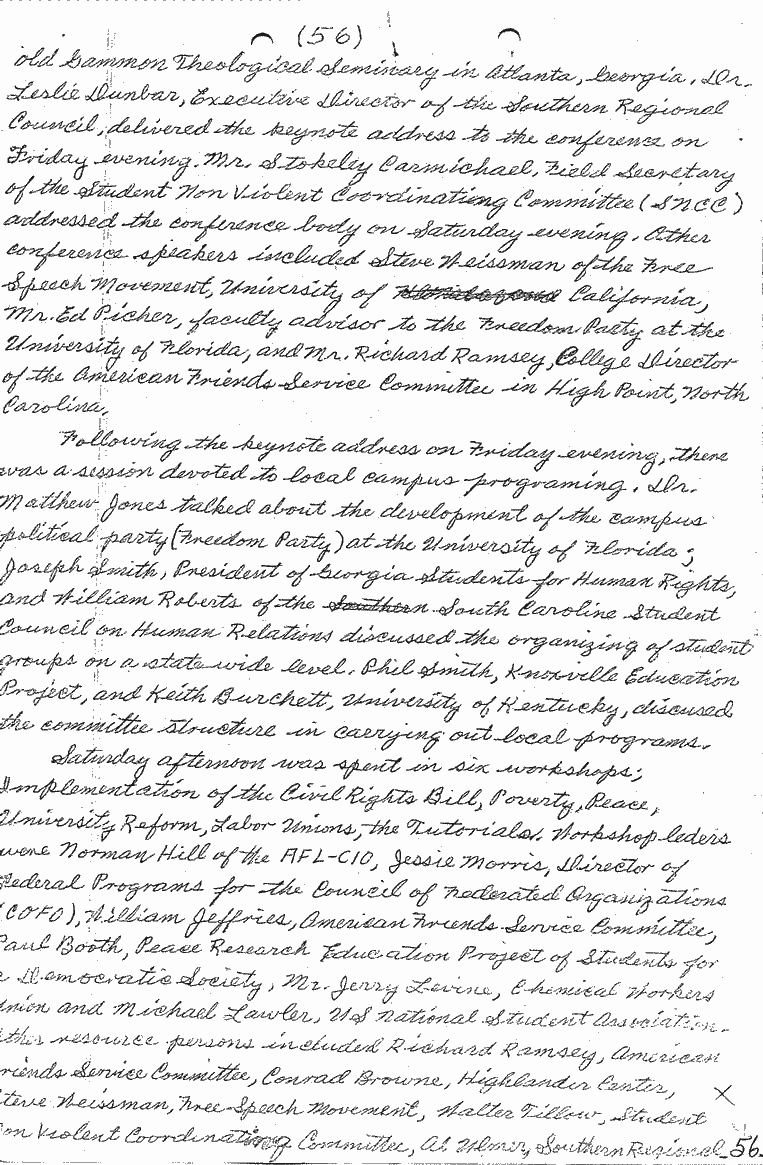 (56)
old Gammon Theological Seminary in Atlanta, Georgia. Dr.
Leslie Dunbar, Executive Director of the Southern Regional
Council, delivered the keynote address to the conference on
Friday evening. Mr. Stokeley Carmichael, Field Secretary
of the Student Non Violent Coordinationg Committee (SNCC)
addressed the conference body on Saturday evening. Other
conference speakers included Steve Weissman of the Free
Speech Movement, University of California,
Mr. Ed Picher, faculty advisor to the Freedom Party at the
University of Florida, and Mr. Richard Ramsey, College Director
of the American Friends Service Committee in High Point, North
Carolina.
Following the keynote address on Friday evening, there
was a session devoted to local campus programing. Dr.
Matthew Jones talked about the development of the campus
political party (Freedom Party) at the University of Florida;
Joseph Smith, President of Georgia Students for Human Rights,
and William Roberts of the Southern South Caroline Student
Council on Human Relations discussed the organizing of student
groups on a state wide level. Phil Smith, Knoxville Education
Project, and Keith Burchett, University of Kentucky, discused
the committee structure in carrying out local programs.
Saturday afternoon was spent in six workshops;
Implementation of the Civil Rights Bill, Poverty, Peace,
University Reform, Labor Unions, the Tutorials. Workshop leders
were Norman Hill of the AFL-CIO, Jessie Morris, Director of
Federal Programs for the Council of Federated Organizations
(COFO), William Jeffries, American Friends Service Committee,
Paul Booth, Peace Research Education Project of Students for
a Democratic Society, Mr. Jerry Levine, Chemical Workers
Union and Michael Lawler, US National Student Association.
ther resource persons included Richard Ramsey, American
riends Service Committee, Conrad Browne, Highlander Center,
teve Weissman, Free Speech Movement, Walter Tillow, Student
on Violent Coordinating Committee, Al Ulmer, Southern Regional
56.